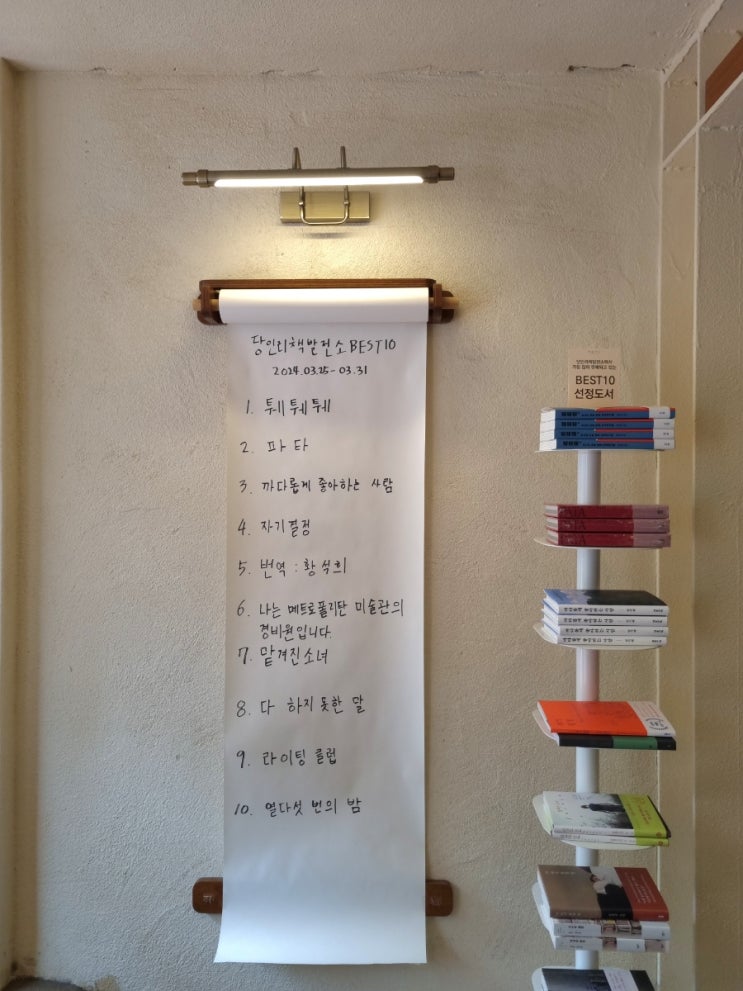 당인리책발전소 BEST10
2024.03.25-03.31
1. 퉤퉤퉤
2. 파타
3. 까다롭게 좋아하는 사람
4. 자기결정
5. 번역 : 황석희
6. 나는 메트로폴리탄 미술관의
경비원입니다.
7. 맡겨진 소녀
8. 다 하지 못한 말
9. 라이팅 클럽
10. 열다섯 번의 밤
당인리책발전소에서
가장 많이 판매되고 있는
BEST10
선정도서